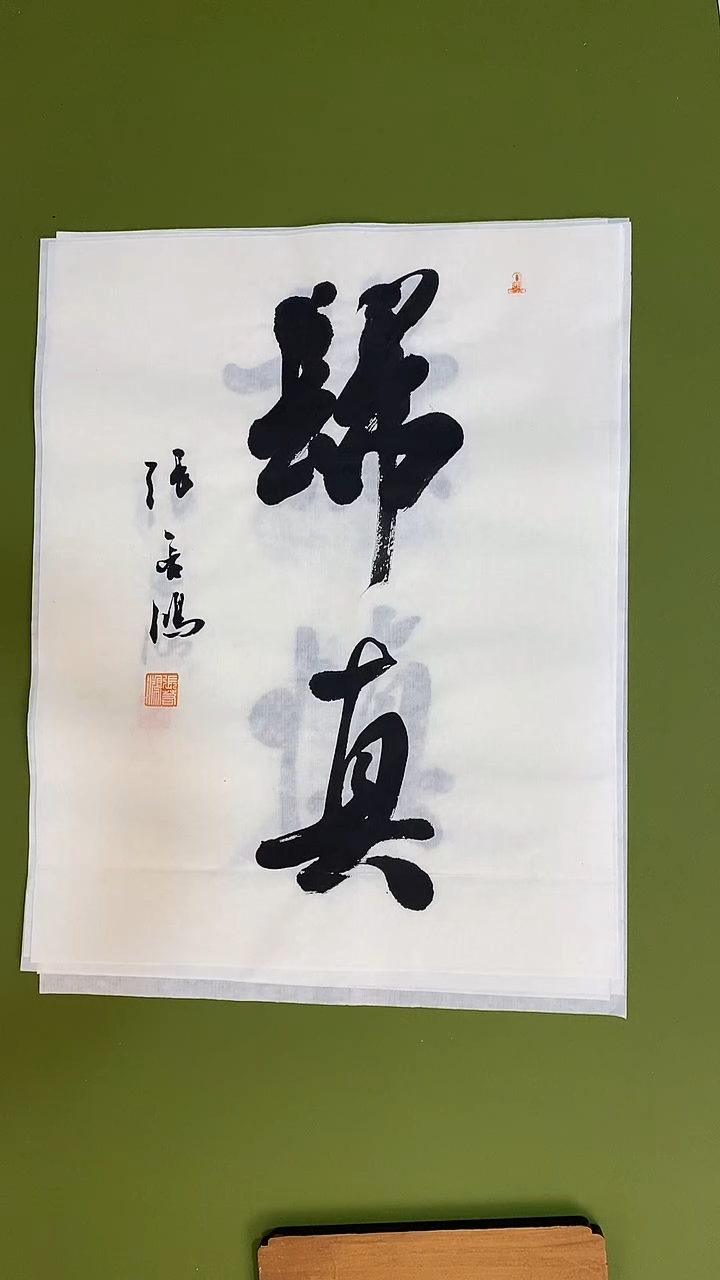 歸真
張善鴻